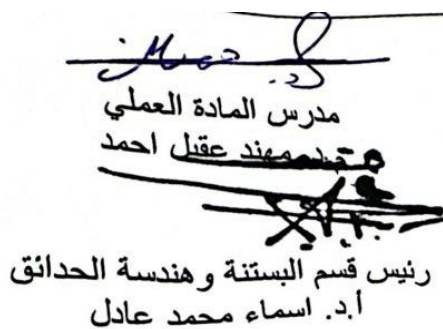 مدرس المادة العملي
مهند عقيل احمد
رئيس قسم البستنة وهندسة الحدائق
أ.د. اسماء محمد عادل